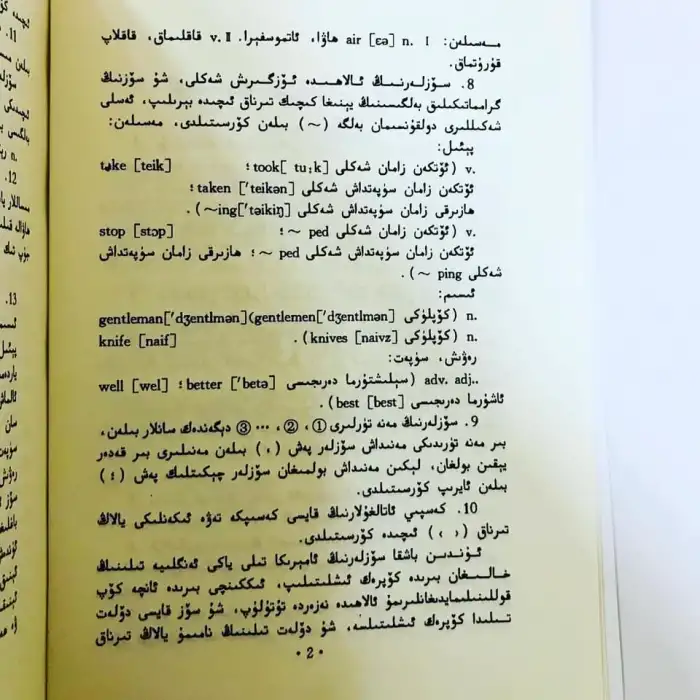 مەسىلەن: air [ɛə] n. Ⅰ ھاۋا، ئاتموسفېرا. v. Ⅱ قاقلىماق، قاقلاپ
قۇرۇتماق.
8. سۆزلەرنىڭ ئالاھىدە ئۆزگىرىش شەكلى، شۇ سۆزنىڭ
گرامماتىكىلىق بەلگىسىنىڭ يېنىغا كىچىك تىرناق ئىچىدە بېرىلىپ، ئەسلى
شەكىللىرى دولقۇنسىمان بەلگە (~) بىلەن كۆرسىتىلدى، مەسىلەن:
پېئىل:
take [teik] v. (ئۆتكەن زامان شەكلى took[ tu:k]؛
ئۆتكەن زامان سۈپەتداش شەكلى taken ['teikən]؛
ھازىرقى زامان سۈپەتداش شەكلى ~ing['təikiŋ]).
stop [stɔp] v. (ئۆتكەن زامان شەكلى ~ ped؛
ئۆتكەن زامان سۈپەتداش شەكلى ~ ped؛ ھازىرقى زامان سۈپەتداش
شەكلى ~ ping).
ئىسىم:
gentleman['dʒentlmən] n. (كۆپلۈكى gentlemen['dʒentlmən])
knife [naif] n. (كۆپلۈكى knives [naivz]).
رەۋىش، سۈپەت:
well [wel] adv. adj.. (سېلىشتۇرما دەرىجىسى better ['betə]؛
ئاشۇرما دەرىجىسى best [best]).
9. سۆزلەرنىڭ مەنە تۈرلىرى ①، ②، … ③ دېگەندەك سانلار بىلەن،
بىر مەنە تۈرىدىكى مەنىداش سۆزلەر پەش (،) بىلەن مەنىلىرى بىر قەدەر
يېقىن بولغان، لېكىن مەنىداش بولمىغان سۆزلەر چېكىتلىك پەش (؛)
بىلەن ئايرىپ كۆرسىتىلدى.
10. كەسپىي ئاتالغۇلارنىڭ قايسى كەسىپكە تەۋە ئىكەنلىكى يالاڭ
تىرناق (‹ ›) ئىچىدە كۆرسىتىلدى.
ئۇندىن باشقا سۆزلەرنىڭ ئامېرىكا تىلى ياكى ئەنگلىيە تىلىنىڭ
خالىغان بىرىدە كۆپرەك ئىشلىتىلىپ، ئىككىنچى بىرىدە ئانچە كۆپ
قوللىنىلمايدىغانلىرىمۇ ئالاھىدە نەزەردە تۇتۇلۇپ، شۇ سۆز قايسى دۆلەت
تىلىدا كۆپرەك ئىشلىتىلسە، شۇ دۆلەت تىلىنىڭ نامىمۇ يالاڭ تىرناق
• 2 •